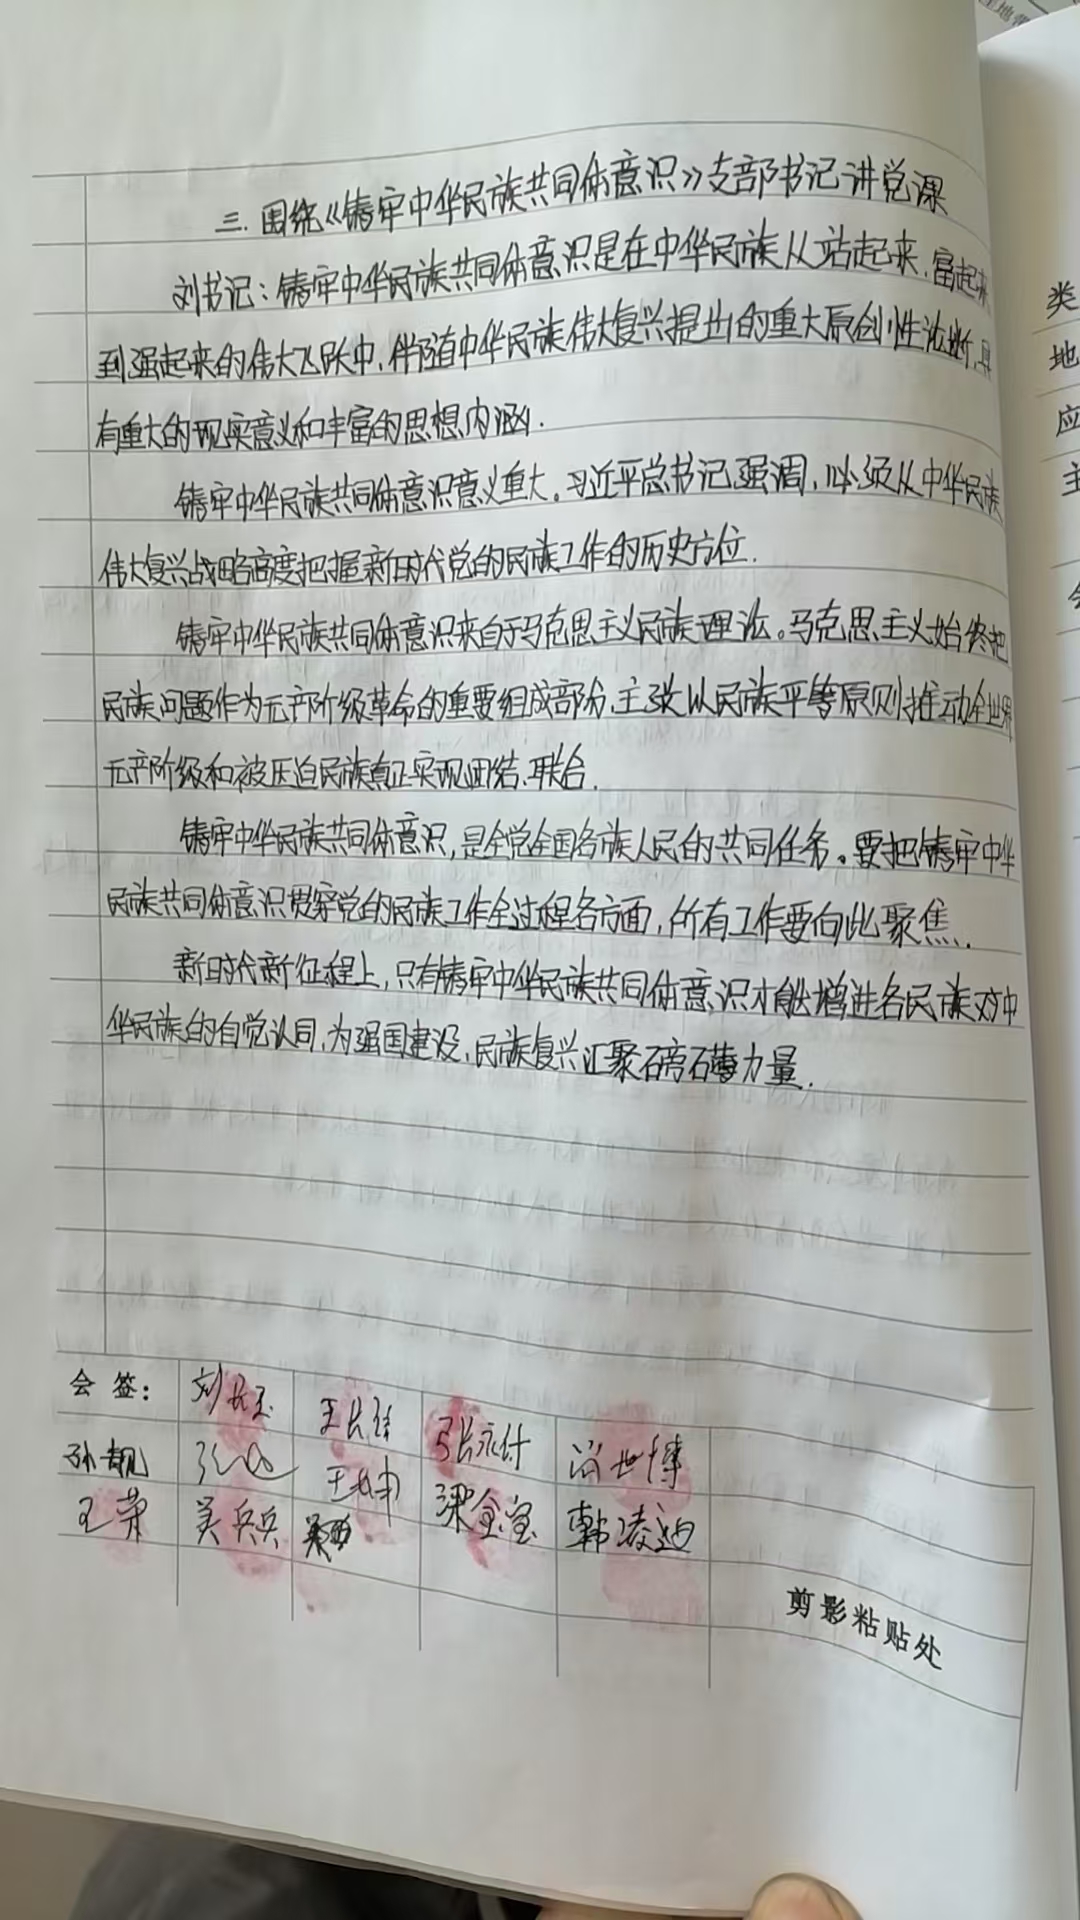 三.围绕《铸牢中华民族共同体意识》支部书记讲党课
刘书记:铸牢中华民族共同体意识是在中华民族从站起来、富起来
到强起来的伟大飞跃中,伴随中华民族伟大复兴提出的重大原创性论断,具
有重大的现实意义和丰富的思想内涵.
铸牢中华民族共同体意识意义重大。习近平总书记强调,必须从中华民族
伟大复兴战略高度把握新时代党的民族工作的历史方位.
铸牢中华民族共同体意识来自于马克思主义民族理论。马克思主义始终把
民族问题作为无产阶级革命的重要组成部分,主张以民族平等原则推动全世界
无产阶级和被压迫民族真正实现团结、联合.
铸牢中华民族共同体意识,是全党全国各族人民的共同任务。要把铸牢中华
民族共同体意识贯穿党的民族工作全过程各方面,所有工作要向此聚焦.
新时代新征程上,只有铸牢中华民族共同体意识才能增进各民族对中
华民族的自觉认同,为强国建设、民族复兴汇聚磅礴力量.
会签:
孙靓 张永付
王荣 吴兵兵 梁金宝 韩凌迪
剪影粘贴处
类
地
应
主